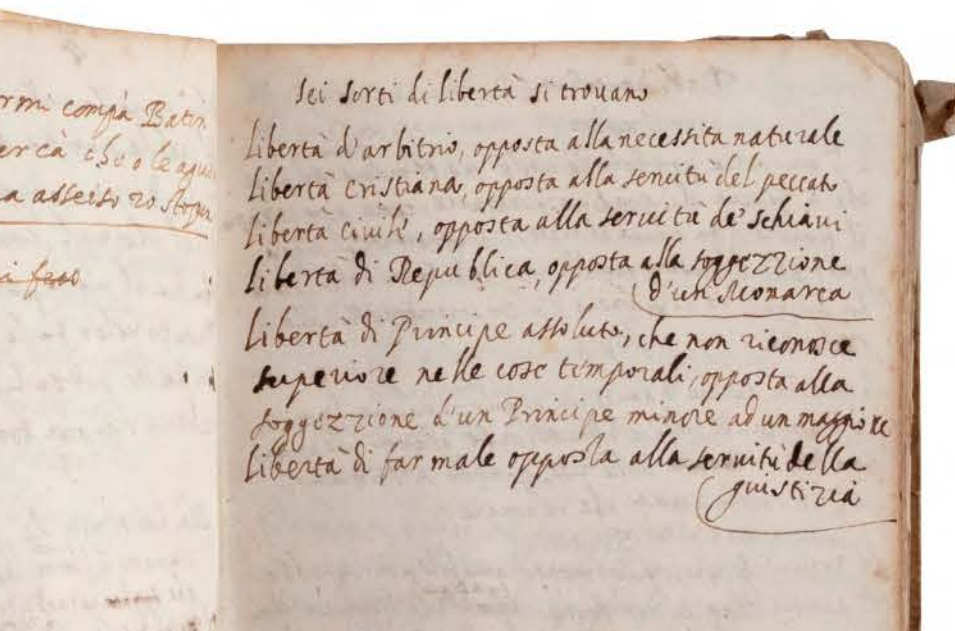 rmi compà Batin
ercà chu o le aque
a asseiso zo
sei sorti di libertà si trouano
libertà d'arbitrio, opposta alla necessita naturale
libertà cristiana, opposta alla seruitù del peccato
libertà ciuile, opposta alla seruitù de' schiaui
libertà di Republica, opposta alla soggezzione
d'un Monarca
libertà di Principe assoluto, che non riconosce
superiore nelle cose temporali, opposta alla
soggezzione d'un Principe minore ad un maggiore
libertà di far male opposta alla seruitù della
giustizia